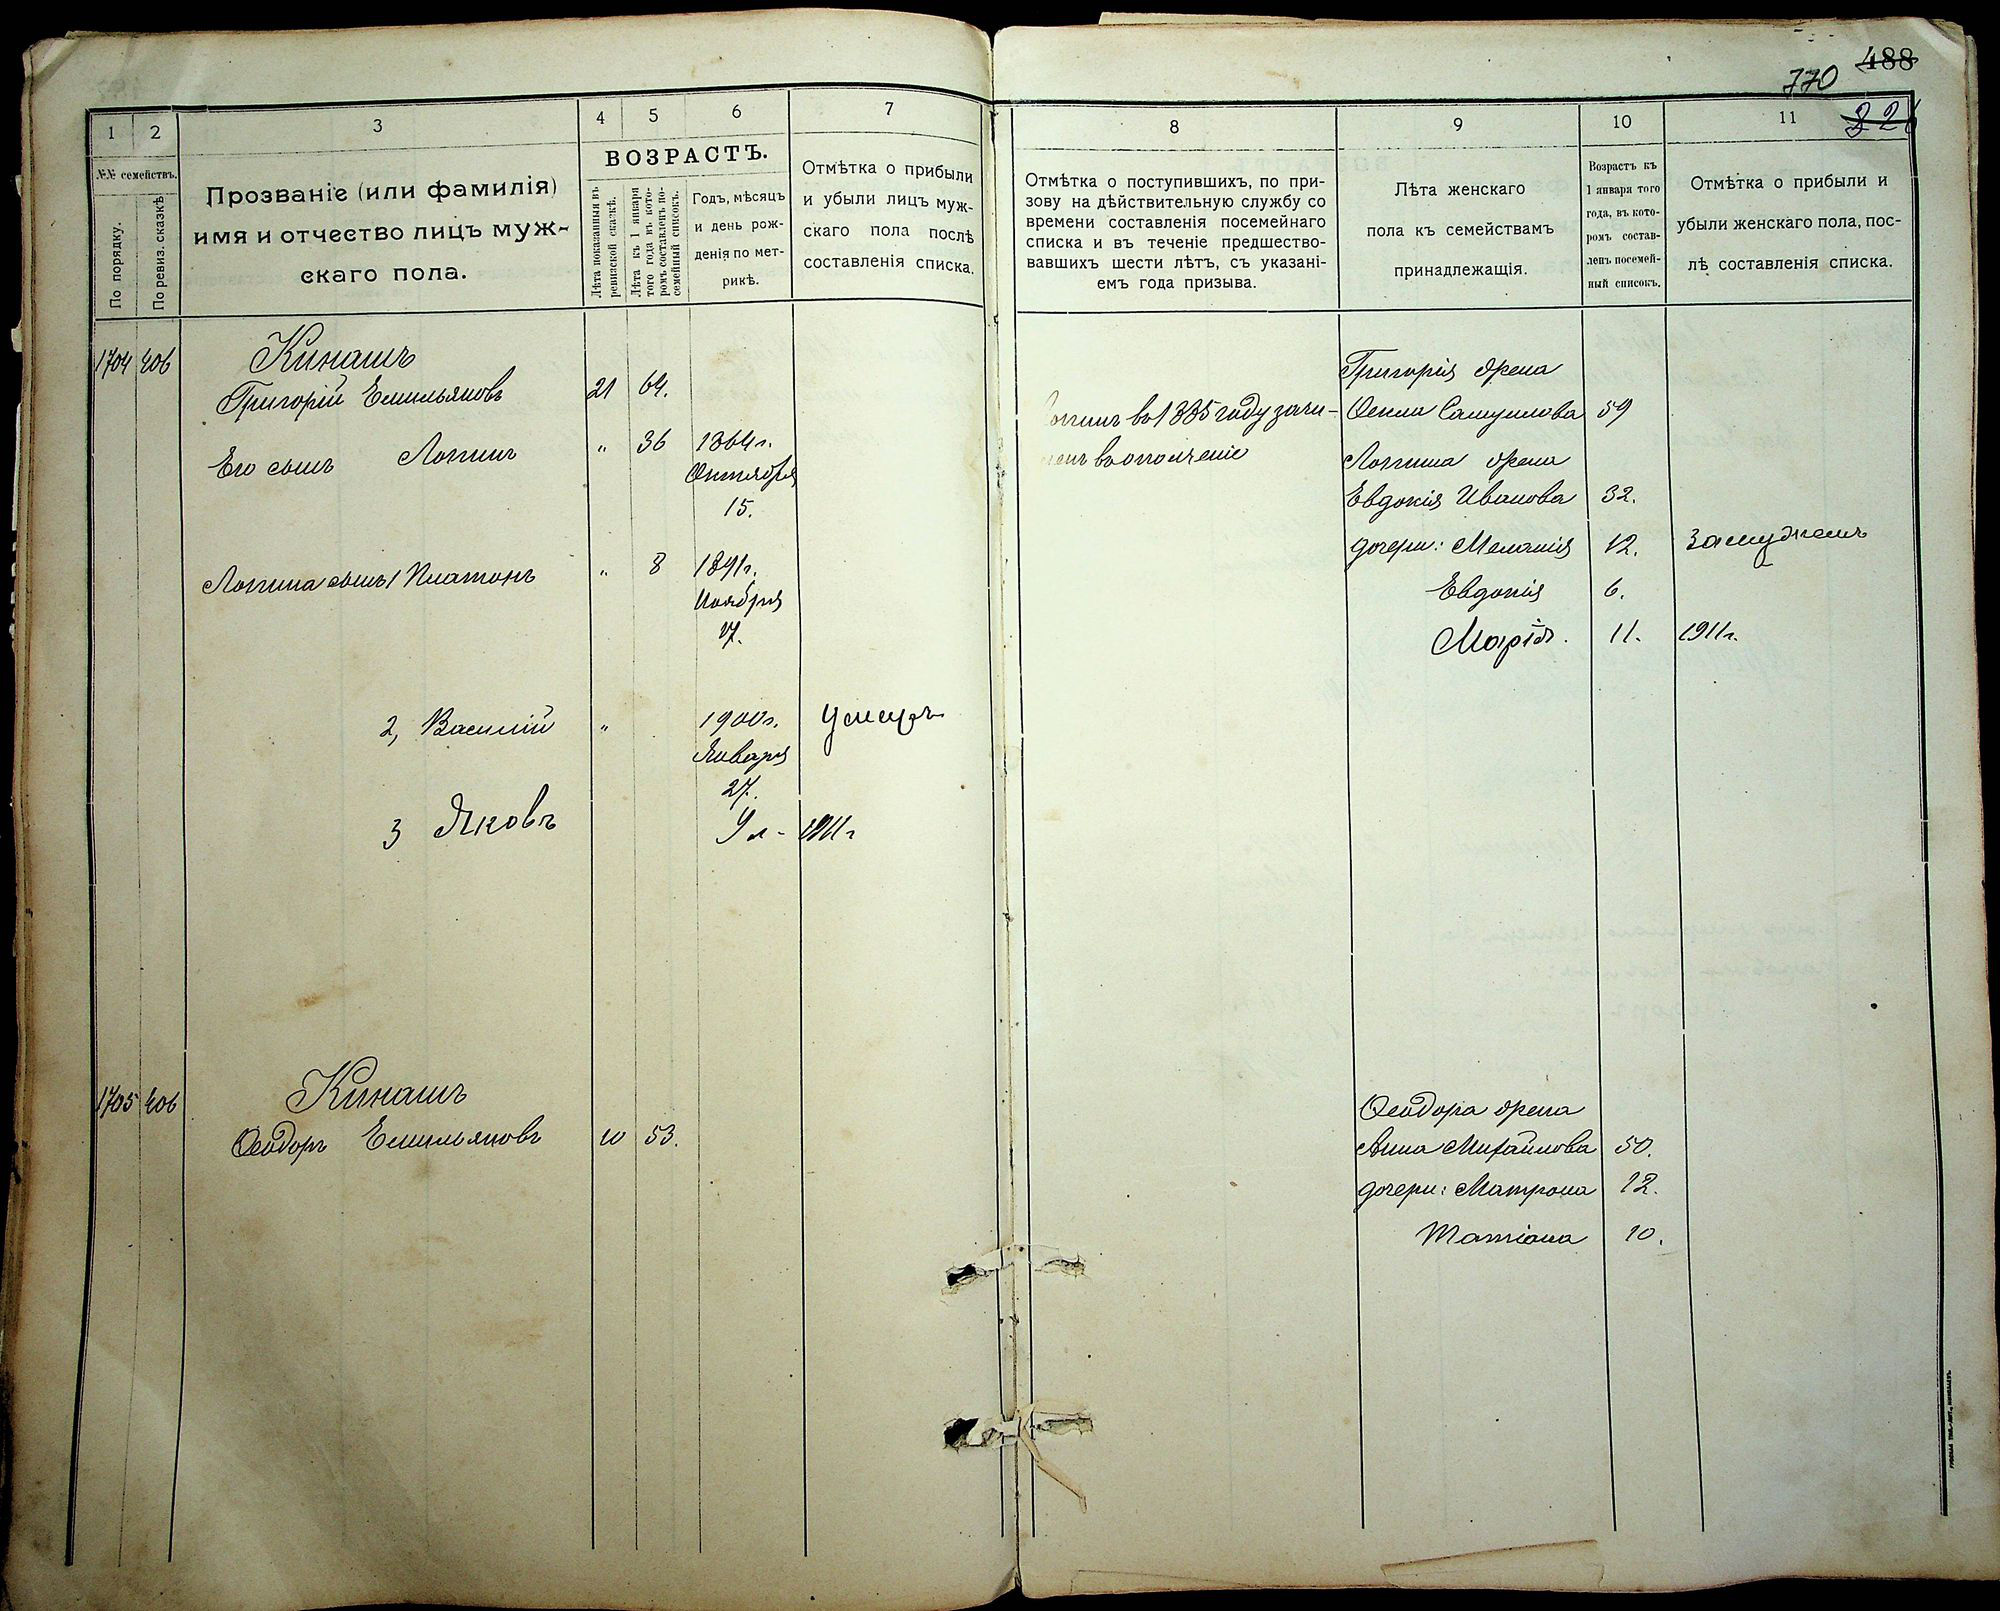 488
770
326
1 2 3 4 5 6 7
№№ семействъ.
По порядку.
По ревиз. сказкѣ
Прозваніе (или фамилія)
имя и отчество лицъ муж-
скаго пола.
ВОЗРАСТЪ.
Лѣта показанныя въ
ревизской сказкѣ.
Лѣта къ 1 января
того года въ кото-
ромъ составленъ по-
семейный списокъ.
Годъ, мѣсяцъ
и день рож-
денія по мет-
рикѣ.
Отмѣтка о прибыли
и убыли лицъ муж-
скаго пола послѣ
составленія списка.
1704 406 Кинашъ
Григорій Емельяновъ 21 64.
Его сынъ Логинъ " 36 1864г.
Октября
15.
Логина сынъ 1 Платонъ " 8 1891г.
Ноября
17.
2, Василій " 1900г. Умеръ
Января
27.
3 Яковъ 9 л - 1911г
1705 406 Кинашъ
Ѳеодоръ Емельяновъ 10 53.
8 9 10 11
Отмѣтка о поступившихъ, по при-
зову на дѣйствительную службу со
времени составленія посемейнаго
списка и въ теченіе предшество-
вавшихъ шести лѣтъ, съ указані-
емъ года призыва.
Лѣта женскаго
пола къ семействамъ
принадлежащія.
Возрастъ къ
1 января того
года, въ кото-
ромъ состав-
ленъ посемей-
ный списокъ.
Отмѣтка о прибыли и
убыли женскаго пола, пос-
лѣ составленія списка.
Григорія жена
Логинъ въ 1885 году зачи- Ѳекла Самуилова 59
сленъ въ ополченіе Логина жена
Евдокія Иванова 32.
дочери: Меланія 12. Замужемъ
Евдокія 6.
Марія. 11. 1911г.
Ѳеодора жена
Анна Михайлова 50.
дочери: Матрона 12.
Татіана 10.